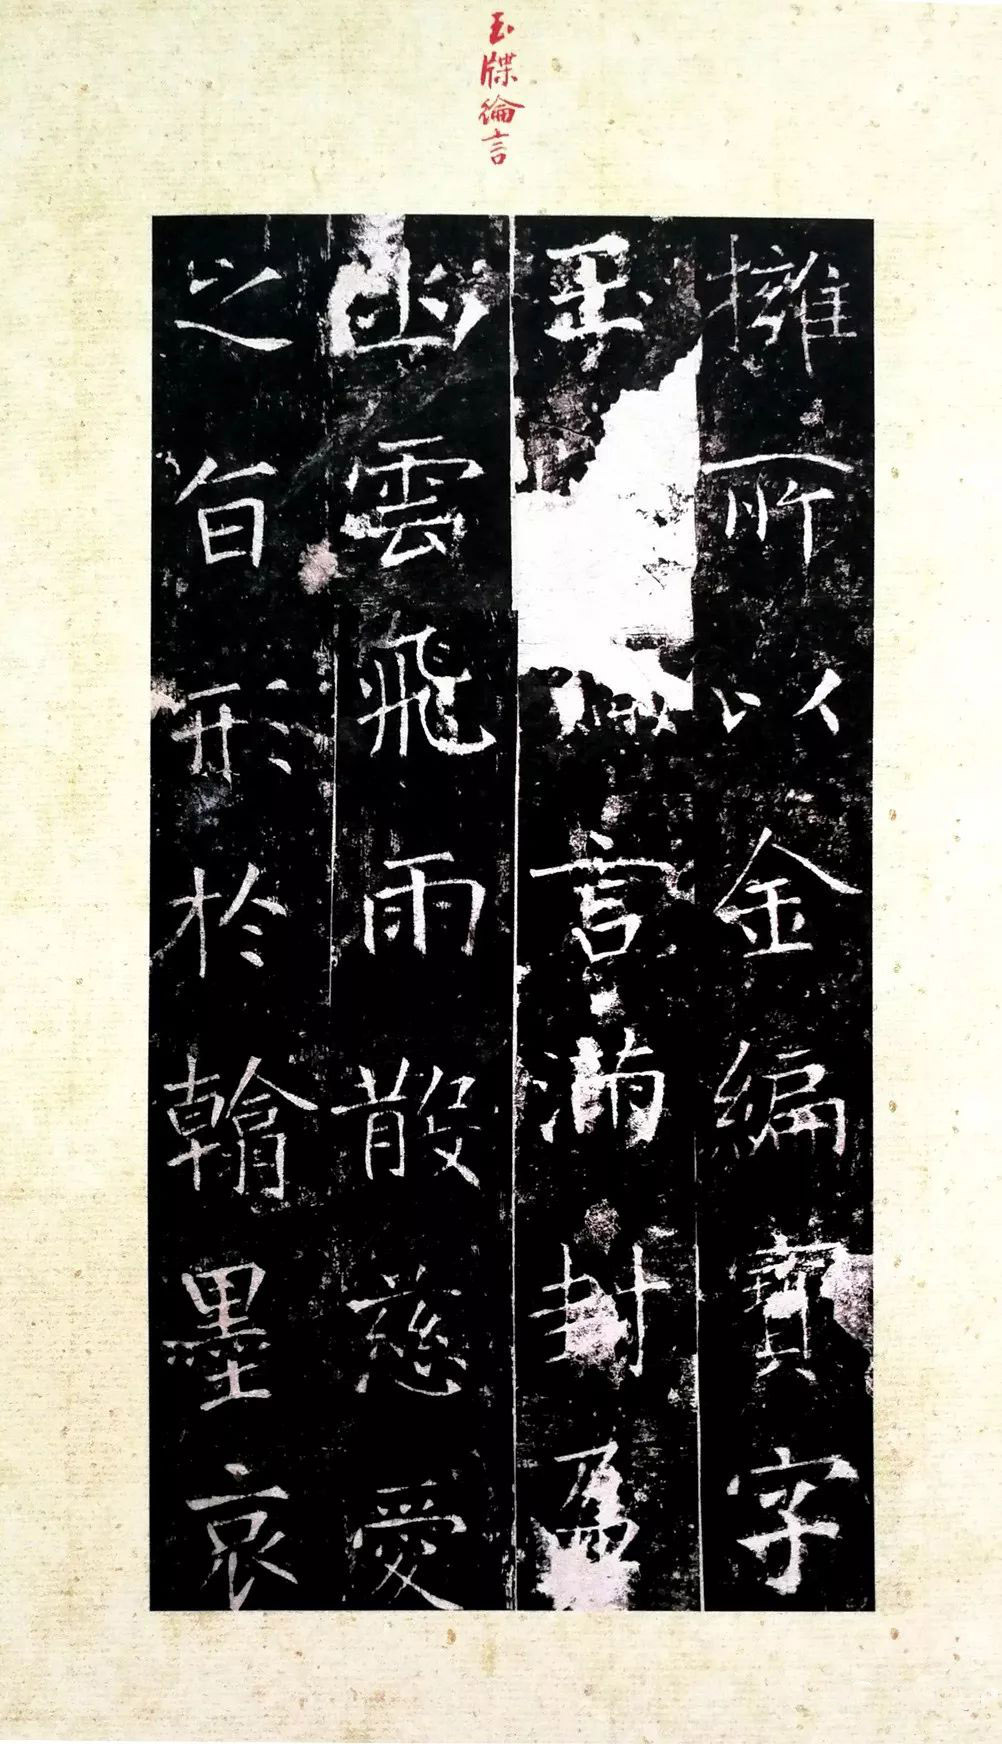 玉牒綸言
擁所以金編寶字
玉言滿封盈
函雲飛雨散慈愛
之旨形於翰墨哀